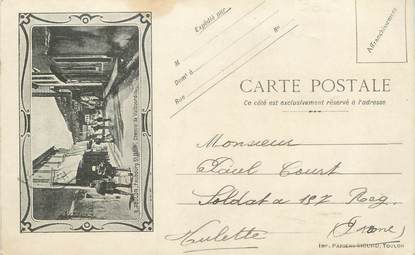 Expédié par
M
Demt à
Rue
No
Affranchissement
CARTE POSTALE
Ce côté est exclusivement réservé à l'adresse
Monsieur
Paul Court
Soldat a 157 Reg
Tulette (Drome)
Imp. Papiers SICARD, TOULON